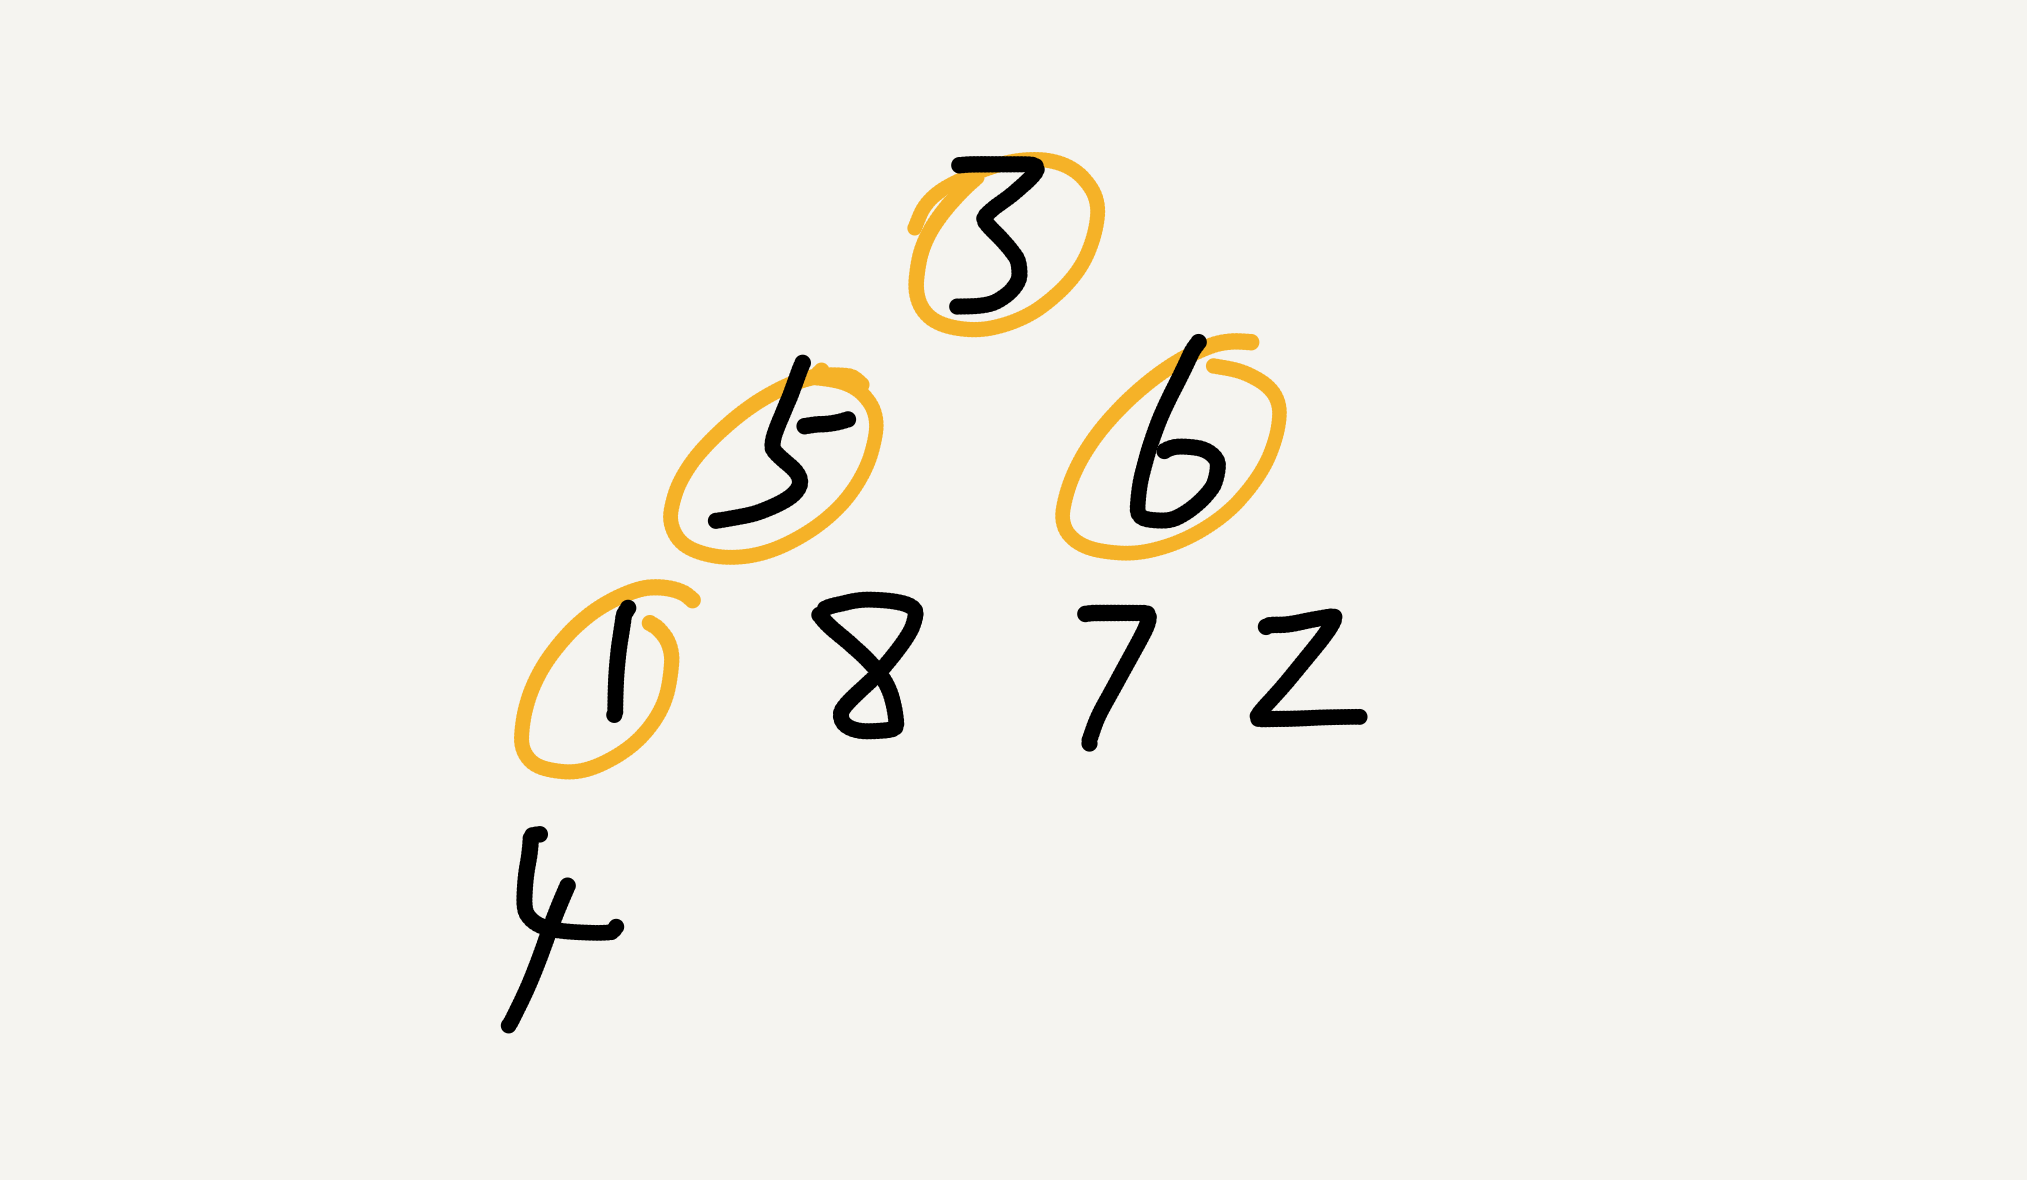 3
5 6
1 8 7 2
4